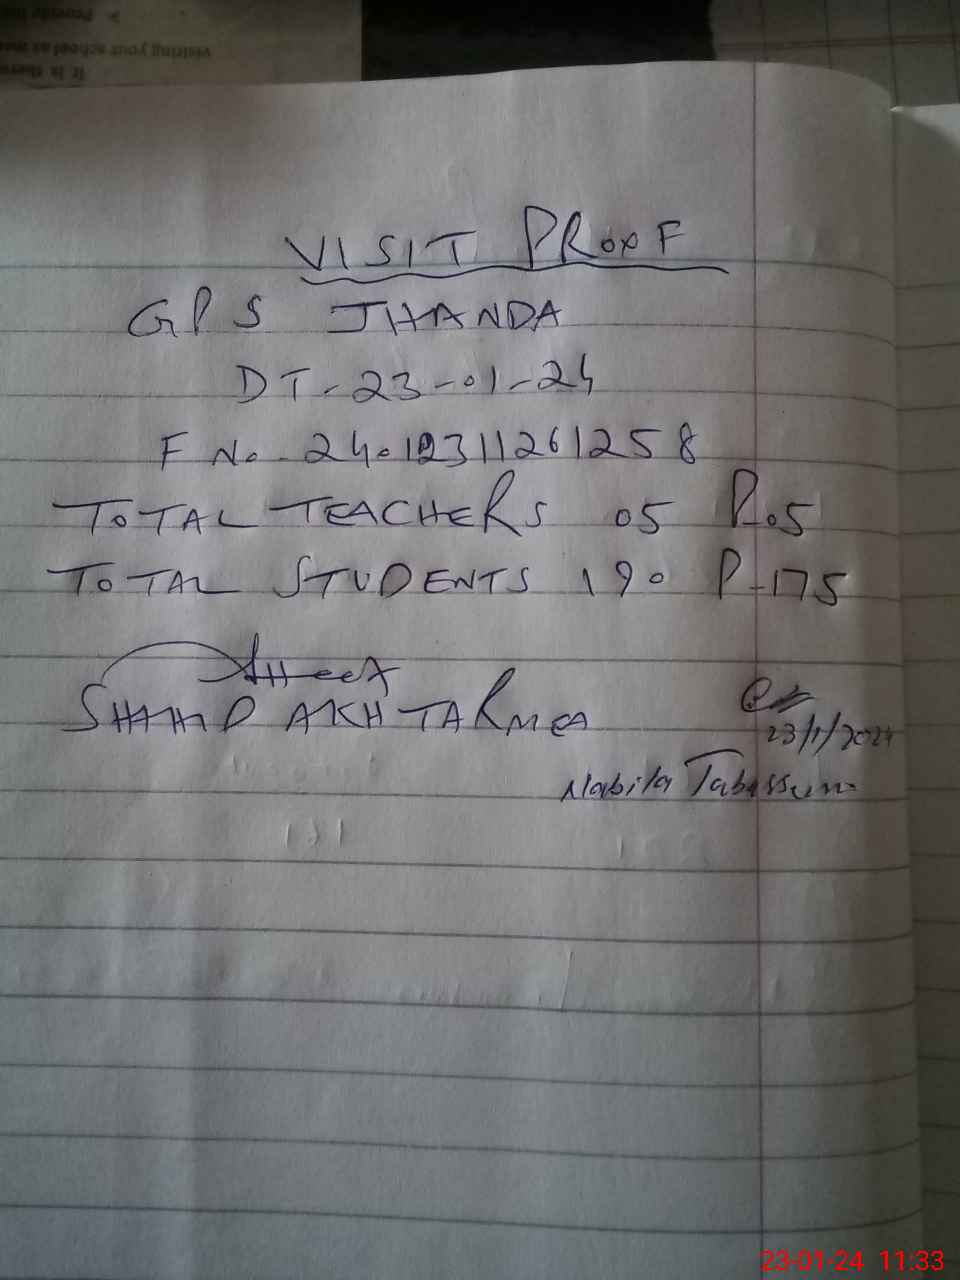 Provide
visiting your school as
It is
VISIT PROOF
GPS JHANDA
DT-23-01-24
F No. 240123112612 58
TOTAL TEACHERS 05 P-05
TOTAL STUDENTS 190 P-175
SHAHID AKHTAR MEA
23/1/2024
Nabila Tabassum
23-01-24 11:33